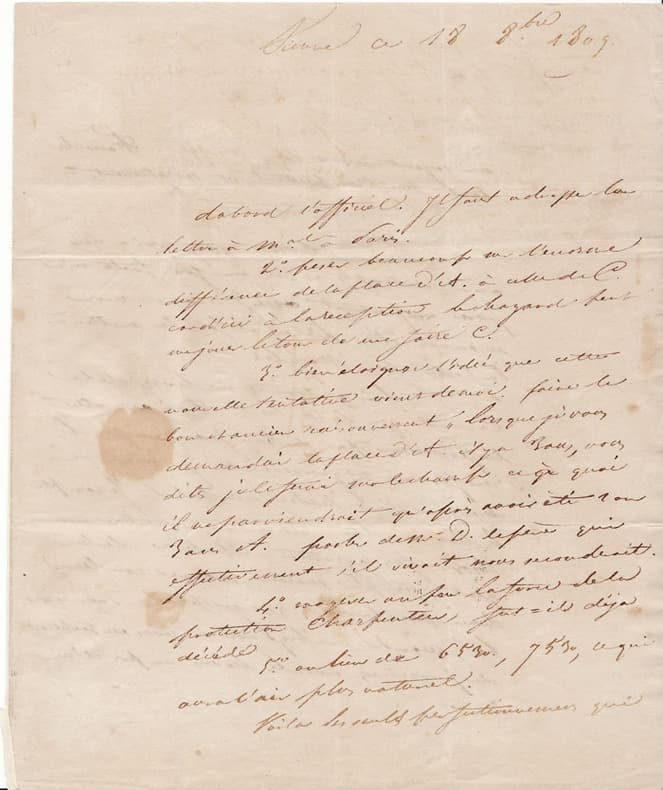 Vienne ce 18 8.bre 1809.
d'abord l'officiel. Il faut adresser la
lettre à m.al à Paris.
2.o peser beaucoup sur l'énorme
différence de la place d'A. à celle de C.
car d'ici à la réception le hazard peut
me jouer le tour de me faire C.
3.o bien éloigner l'idée que cette
nouvelle tentative vient de moi. faire le
bon et ancien raisonnement " lorsque je vous
demandai la place d'A il y a 3 ans, vous
dites je le ferai sur le champ ce à quoi
il ne parviendrait qu'après avoir été 2 ou
3 ans A. parler de M. D. le père qui
effectivement s'il vivait nous seconderait.
4.o exagérer un peu la force de la
protection Charpentier, fut=il déja
décédé
5.o au lieu de 6530, 7530, ce qui
aura l'air plus naturel.
Voila les seuls perfectionnemens que